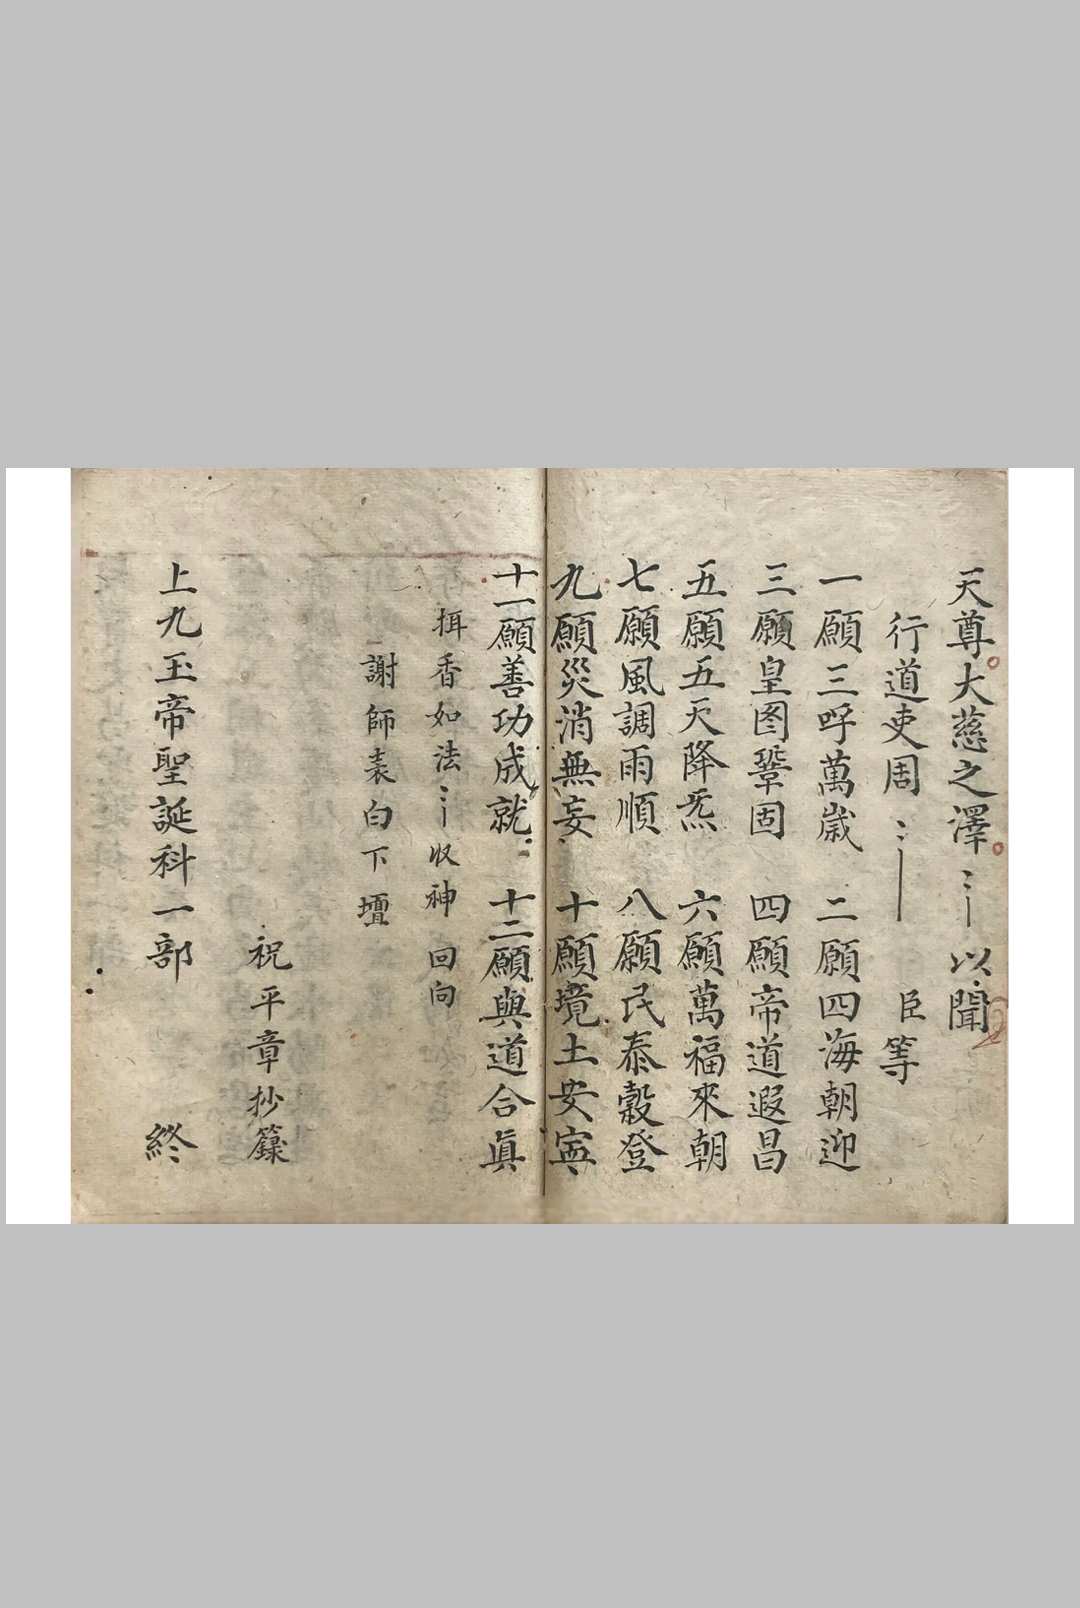 天尊大慈之澤以聞
行道吏周 臣等
一願三呼萬歲 二願四海朝迎
三願皇图鞏固 四願帝道遐昌
五願五天降炁 六願萬福來朝
七願風調雨順 八願民泰穀登
九願災消無妄 十願境土安寍
十一願善功成就 十二願與道合眞
揖香如法 收神 回向
謝師表白下壇
祝平章抄籙
上九玉帝聖誕科一部 終